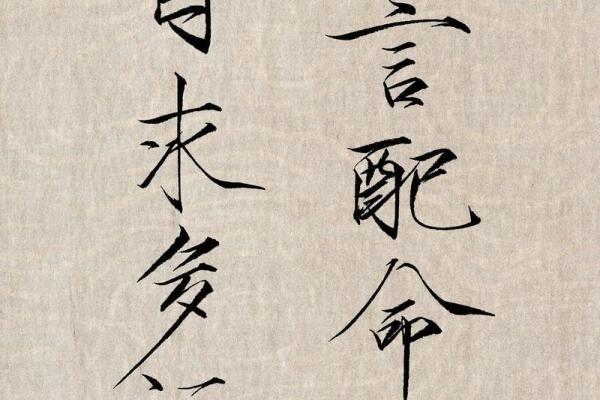 言配命
自求多